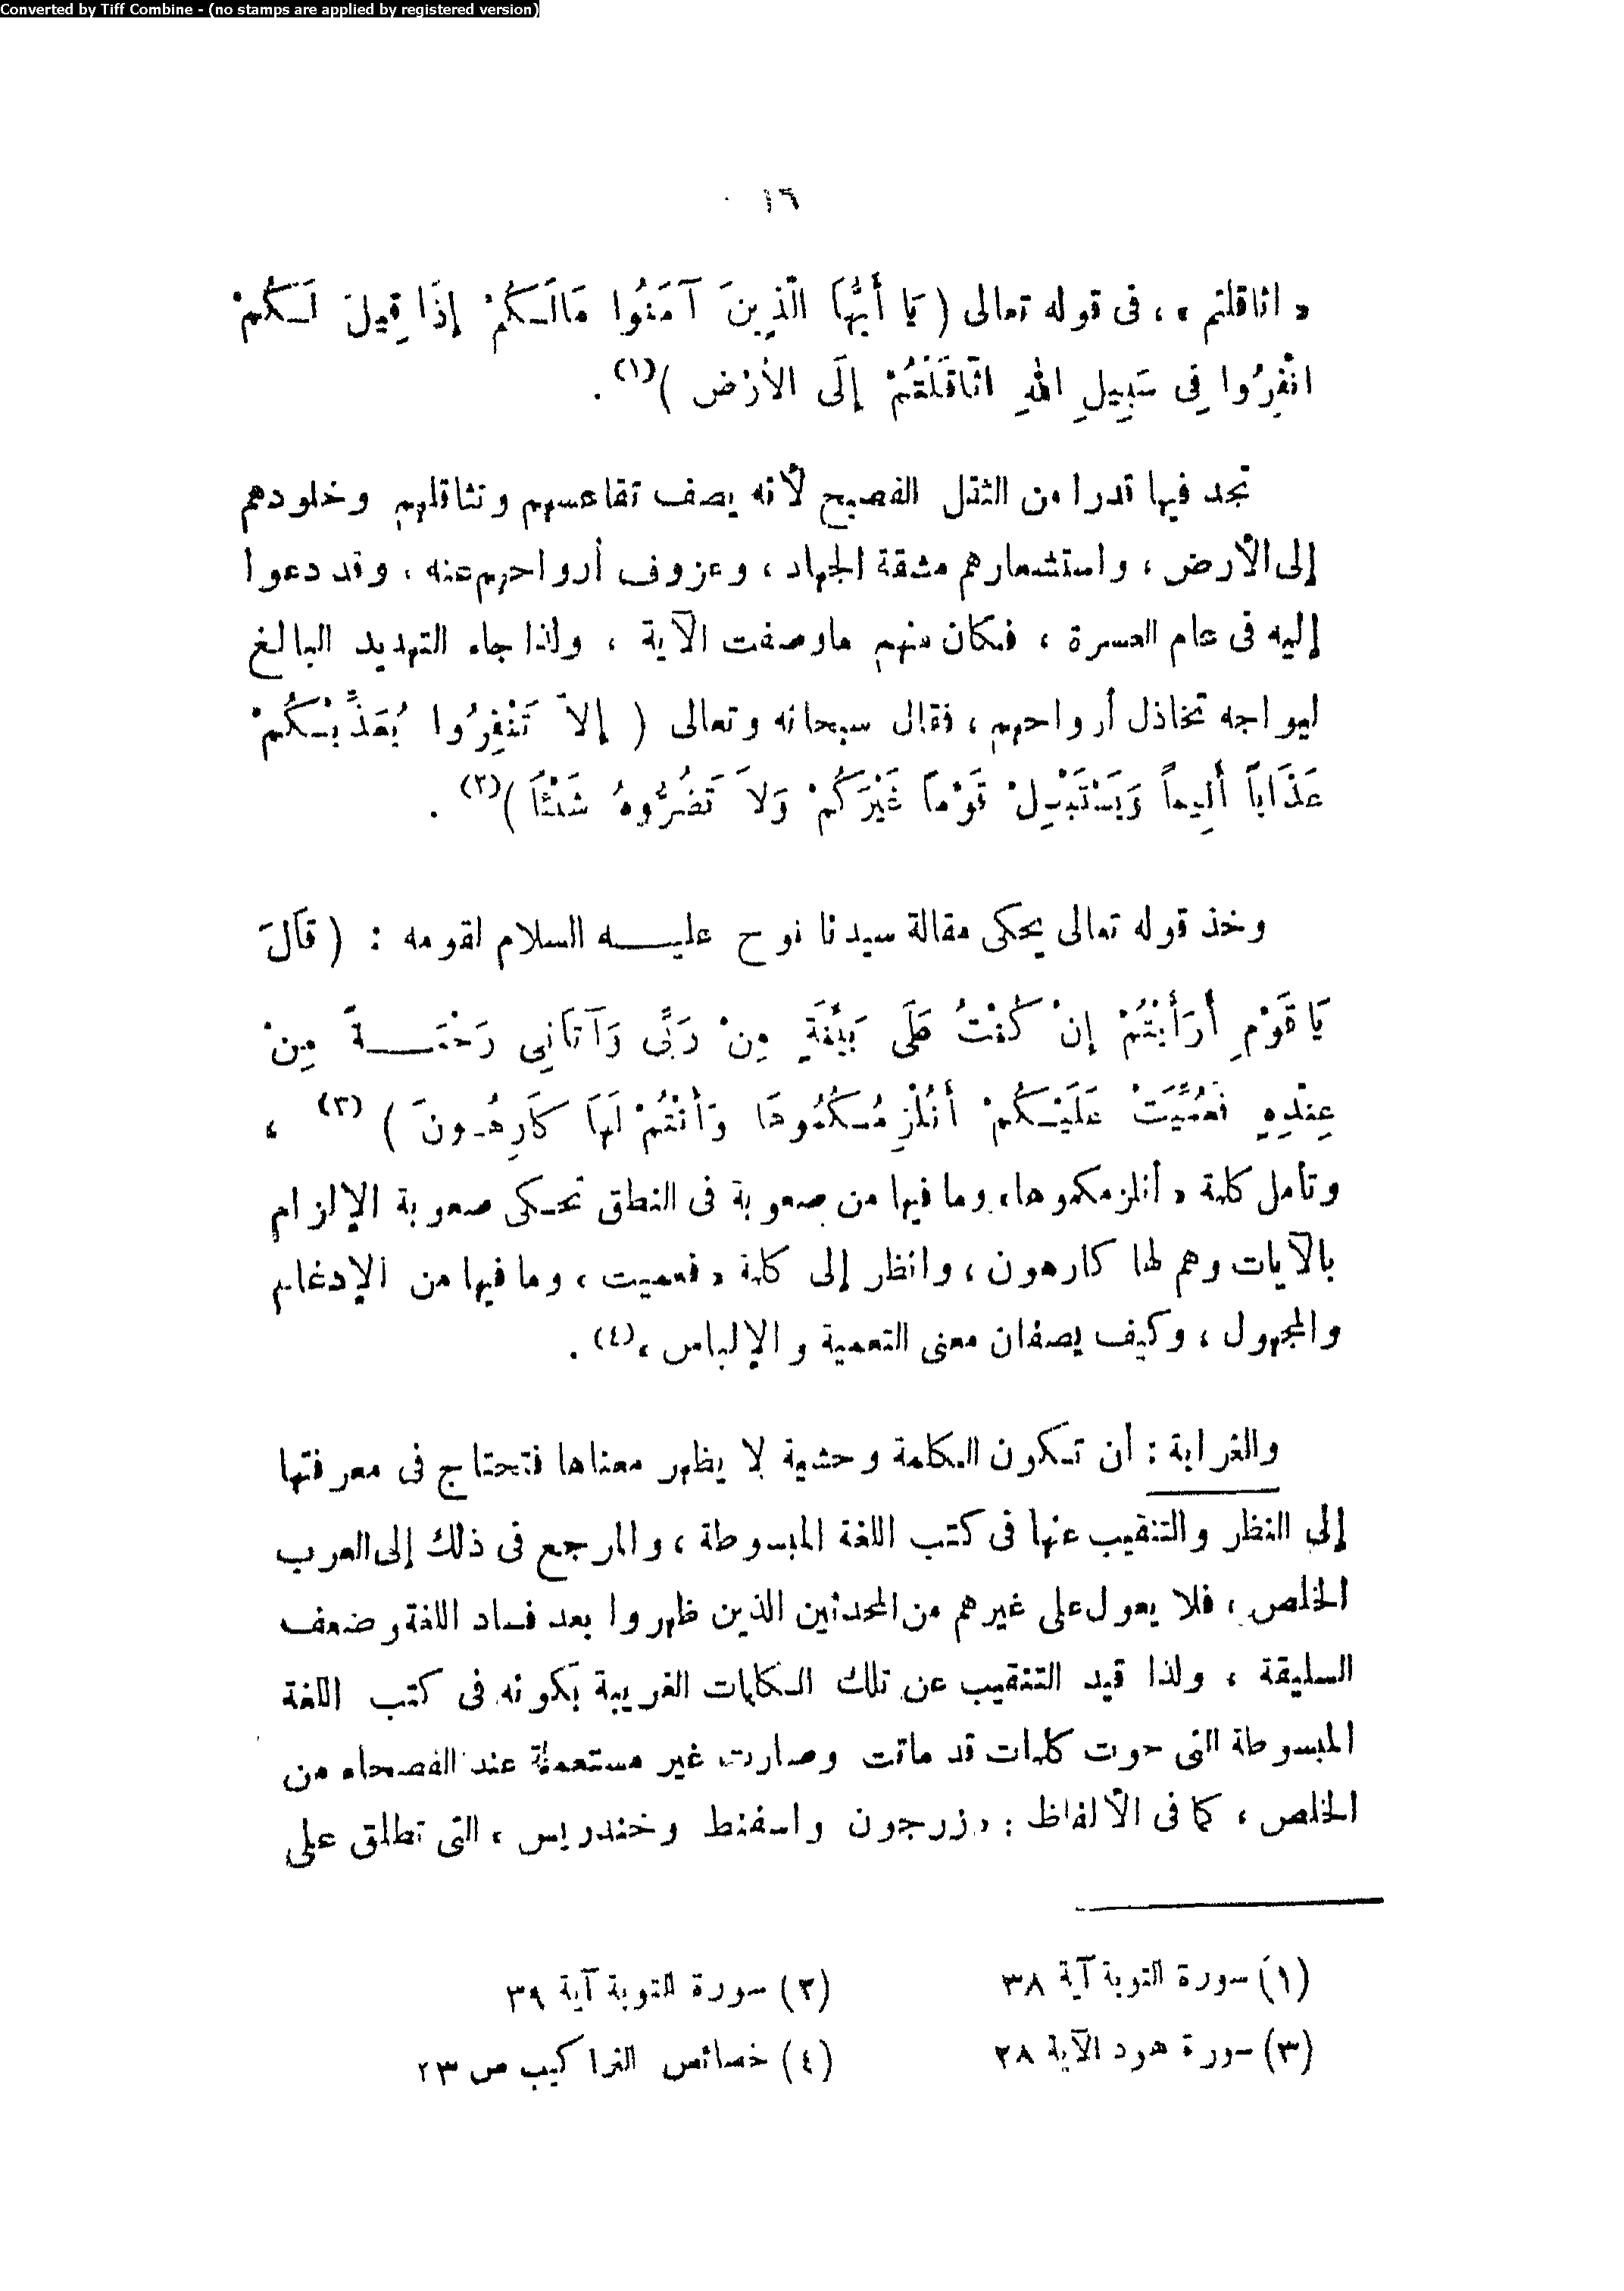 Converted by Tiff Combine - (no stamps are applied by registered version)
١٦
« اثاقلتم » ، فى قوله تعالى ( يَا أَيُّهَا الَّذِينَ آمَنُوا مَالَكُمْ إِذَا قِيلَ لَكُمْ
انْفِرُوا فِى سَبِيلِ اللهِ اثَّاقَلْتُمْ إِلَى الأَرْض )(١) .
تجد فيها قدرا من الثقل الفصيح لأنه يصف تقاعسهم وتثاقلهم وخلودهم
إلى الأرض ، واستشعارهم مشقة الجهاد ، وعزوف أرواحهم عنه ، وقد دعوا
إليه فى عام العسرة ، فكان منهم ماوصفت الآية ، ولذا جاء التهديد البالغ
ليواجه تخاذل أرواحهم ، فقال سبحانه وتعالى ( إلاَّ تَنْفِرُوا يُعَذِّبْكُمْ
عَذَاباً أَلِيماً وَيَسْتَبْدِلْ قَوْماً غَيْرَكُمْ وَلاَ تَضُرُّوهُ شَيْئاً )(٢) .
وخذ قوله تعالى يحكى مقالة سيدنا نوح عليه السلام لقومه : ( قَالَ
يَا قَوْمِ أَرَأَيْتُمْ إِنْ كُنْتُ عَلَى بَيِّنَةٍ مِنْ رَبِّى وَآتَانِى رَحْمَةً مِنْ
عِنْدِهِ فَعُمِّيَتْ عَلَيْكُمْ أَنُلْزِمُكُمُوهَا وَأَنْتُمْ لَهَا كَارِهُونَ ) (٣) ،
وتأمل كلمة « أنلزمكموها » وما فيها من صعوبة فى النطق تحكى صعوبة الإلزام
بالآيات وهم لها كارهون ، وانظر إلى كلمة « فعميت » وما فيها من الإدغام
والمجهول ، وكيف يصفان معنى التعمية والإلباس »(٤) .
والغرابة : أن تكون الكلمة وحشية لا يظهر معناها فتحتاج فى معرفتها
إلى النظر والتنقيب عنها فى كتب اللغة المبسوطة ، والمرجع فى ذلك إلى العرب
الخلص ، فلا يعول على غيرهم من المحدثين الذين ظهروا بعد فساد اللغة وضعف
السليقة ، ولذا قيد التنقيب عن تلك الكلمات الغريبة بكونه فى كتب اللغة
المبسوطة التى حوت كلمات قد ماتت وصارت غير مستعملة عند الفصحاء من
الخلص ، كما فى الألفاظ : « زرجون واسفنط وخندريس » التى تطلق على
(١) سورة التوبة آية ٣٨
(٢) سورة التوبة آية ٣٩
(٣) سورة هود الآية ٢٨
(٤) خصائص التراكيب ص ٢٣